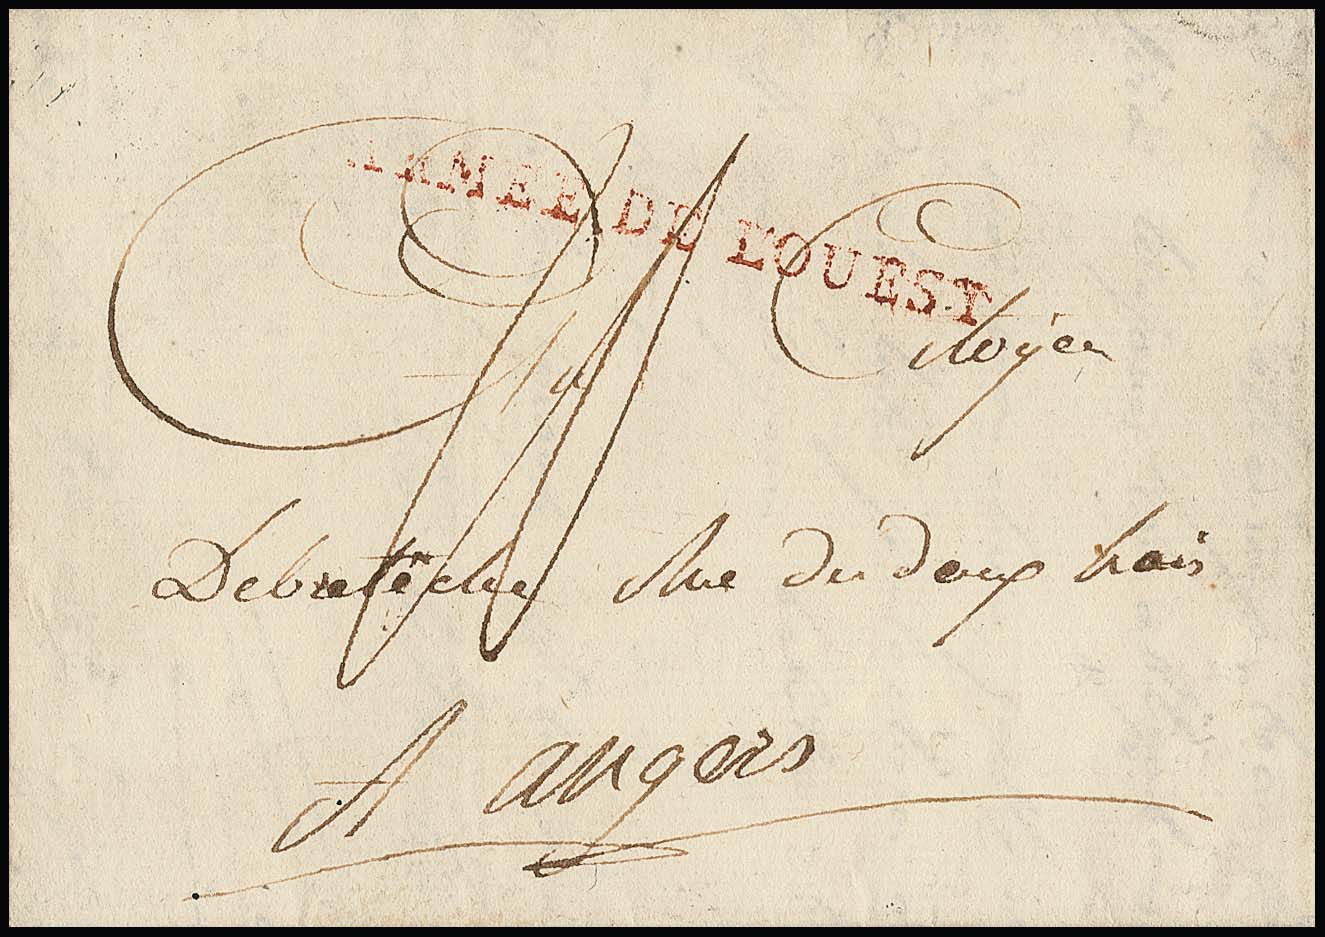 ARMEE DE L'OUEST
Au Citoyen
Debreteche Rue du deux hais
A angers